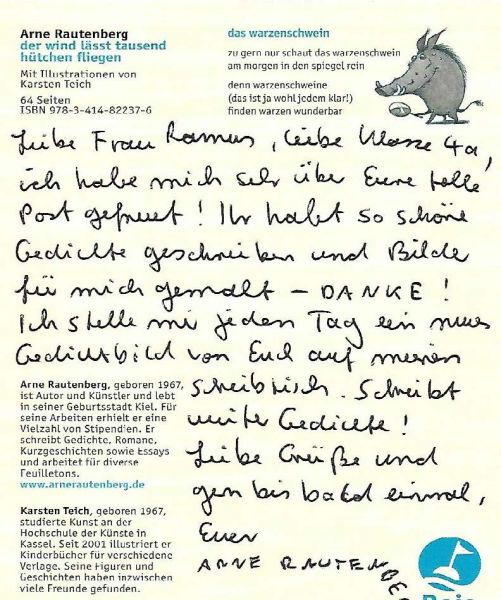 Arne Rautenberg
der wind lässt tausend
hütchen fliegen
Mit Illustrationen von
Karsten Teich
64 Seiten
ISBN 978-3-414-82237-6
das warzenschwein
zu gern nur schaut das warzenschwein
am morgen in den spiegel rein
denn warzenschweine
(das ist ja wohl jedem klar!)
finden warzen wunderbar
Liebe Frau Ramus, liebe Klasse 4a,
ich habe mich sehr über Eure tolle
Post gefreut! Ihr habt so schöne
Gedichte geschrieben und Bilder
für mich gemalt – DANKE!
Ich stelle mir jeden Tag ein neues
Gedichtbild von Euch auf meinen
Schreibtisch. Schreibt
weiter Gedichte!
Liebe Grüße und
gern bis bald einmal,
Euer
ARNE RAUTENBERG
Arne Rautenberg, geboren 1967,
ist Autor und Künstler und lebt
in seiner Geburtsstadt Kiel. Für
seine Arbeiten erhielt er eine
Vielzahl von Stipendien. Er
schreibt Gedichte, Romane,
Kurzgeschichten sowie Essays
und arbeitet für diverse
Feuilletons.
www.arnerautenberg.de
Karsten Teich, geboren 1967,
studierte Kunst an der
Hochschule der Künste in
Kassel. Seit 2001 illustriert er
Kinderbücher für verschiedene
Verlage. Seine Figuren und
Geschichten haben inzwischen
viele Freunde gefunden.